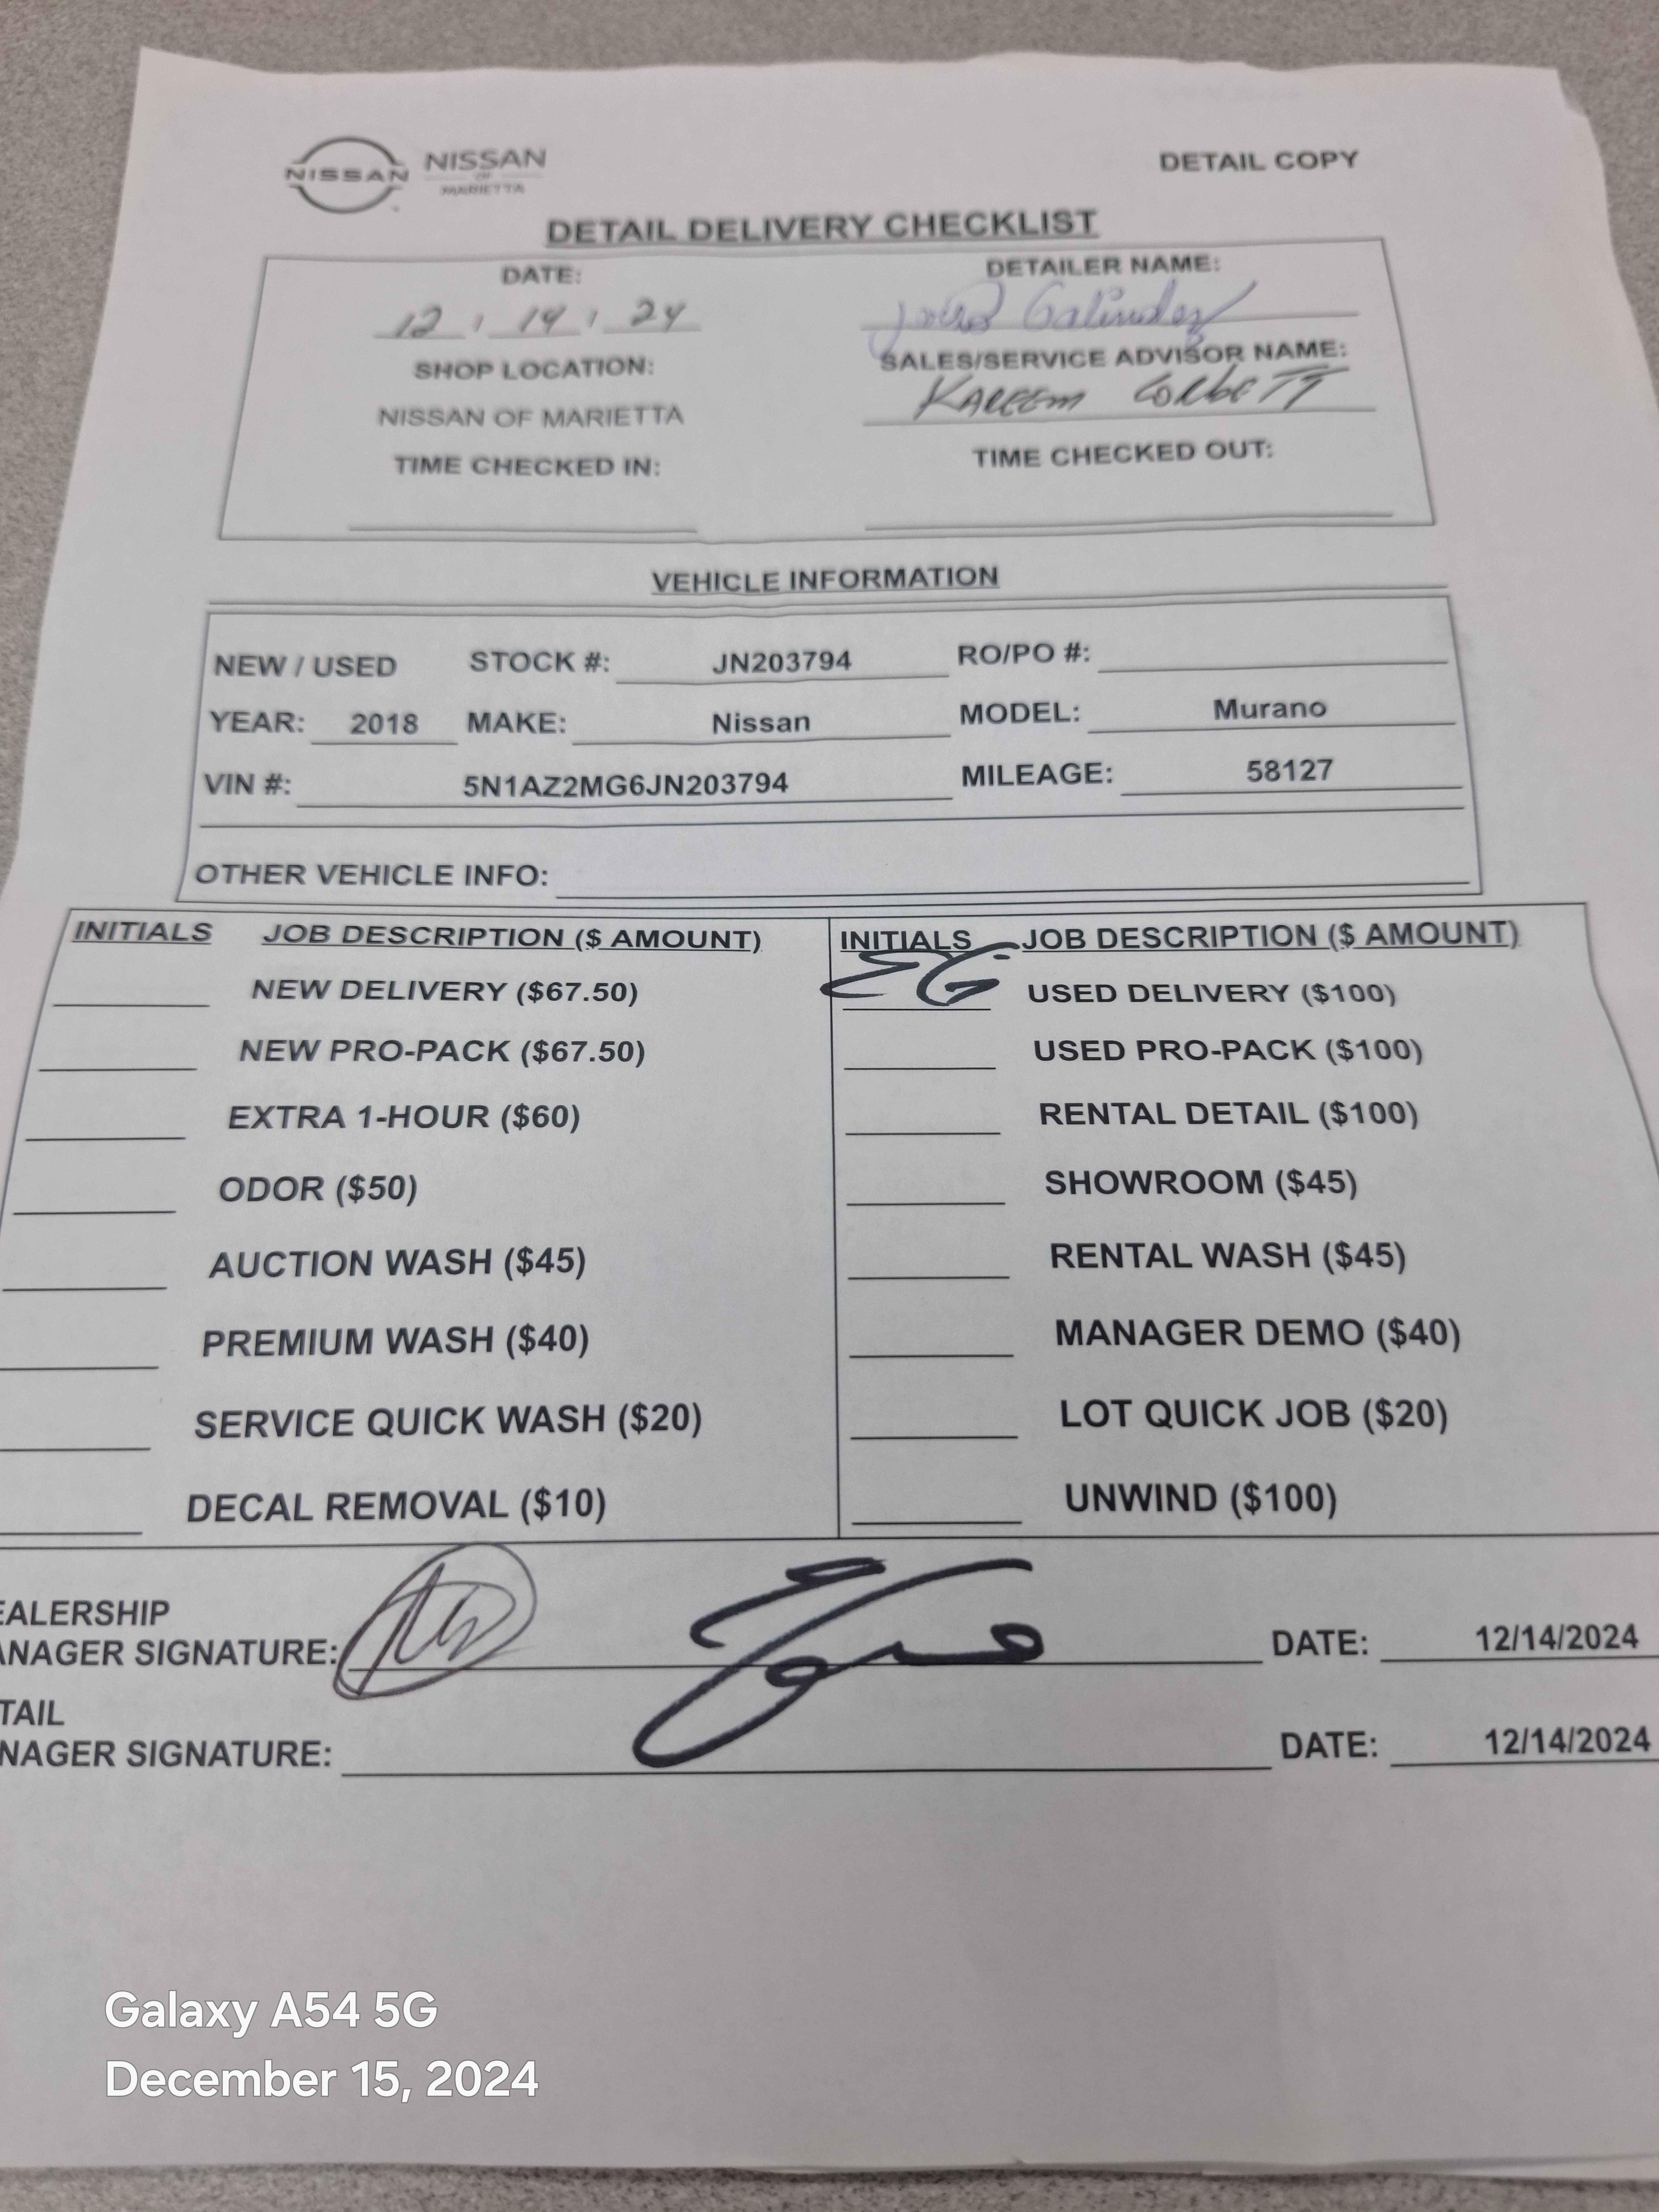 NISSAN NISSAN OF MARIETTA DETAIL COPY
DETAIL DELIVERY CHECKLIST
DATE: DETAILER NAME:
12 / 14 / 24 Galindez
SHOP LOCATION: SALES/SERVICE ADVISOR NAME:
NISSAN OF MARIETTA KAREEM CORBETT
TIME CHECKED IN: TIME CHECKED OUT:
VEHICLE INFORMATION
NEW / USED STOCK #: JN203794 RO/PO #:
YEAR: 2018 MAKE: Nissan MODEL: Murano
VIN #: 5N1AZ2MG6JN203794 MILEAGE: 58127
OTHER VEHICLE INFO:
INITIALS JOB DESCRIPTION ($ AMOUNT) INITIALS JOB DESCRIPTION ($ AMOUNT)
NEW DELIVERY ($67.50) EG USED DELIVERY ($100)
NEW PRO-PACK ($67.50) USED PRO-PACK ($100)
EXTRA 1-HOUR ($60) RENTAL DETAIL ($100)
ODOR ($50) SHOWROOM ($45)
AUCTION WASH ($45) RENTAL WASH ($45)
PREMIUM WASH ($40) MANAGER DEMO ($40)
SERVICE QUICK WASH ($20) LOT QUICK JOB ($20)
DECAL REMOVAL ($10) UNWIND ($100)
EALERSHIP
ANAGER SIGNATURE: DATE: 12/14/2024
TAIL
NAGER SIGNATURE: DATE: 12/14/2024
Galaxy A54 5G
December 15, 2024